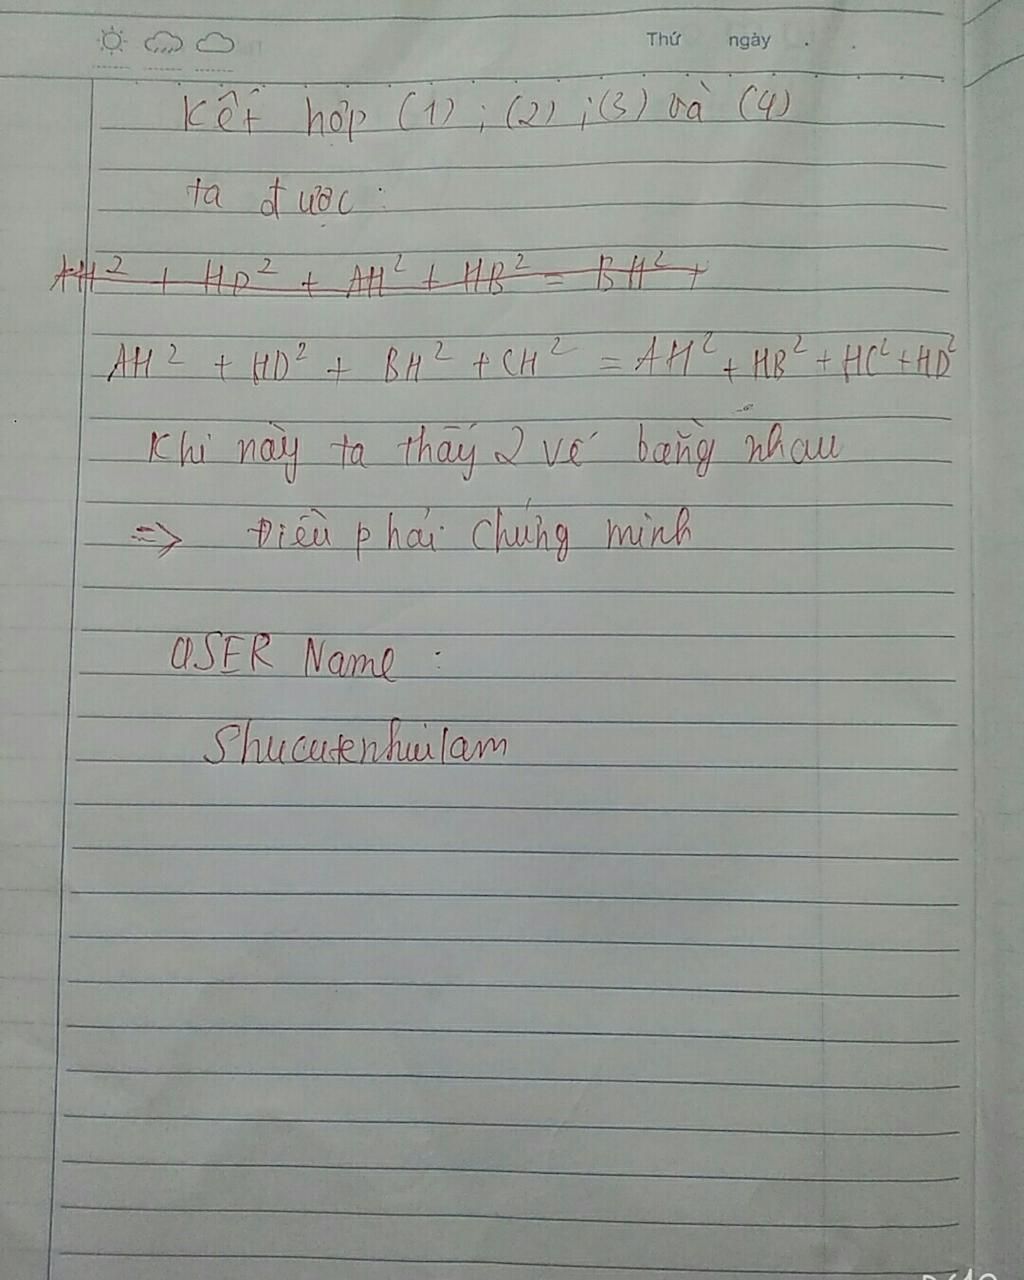 Thứ ngày . .
Kết hợp (1) ; (2) ; (3) và (4)
ta được :
AH² + HD² + AH² + HB² = BH² +
AH² + HD² + BH² + CH² = AH² + HB² + HC² + HD²
Khi này ta thấy 2 vế bằng nhau
=> Điều phải chứng minh
USER Name :
Shucutenhuilam